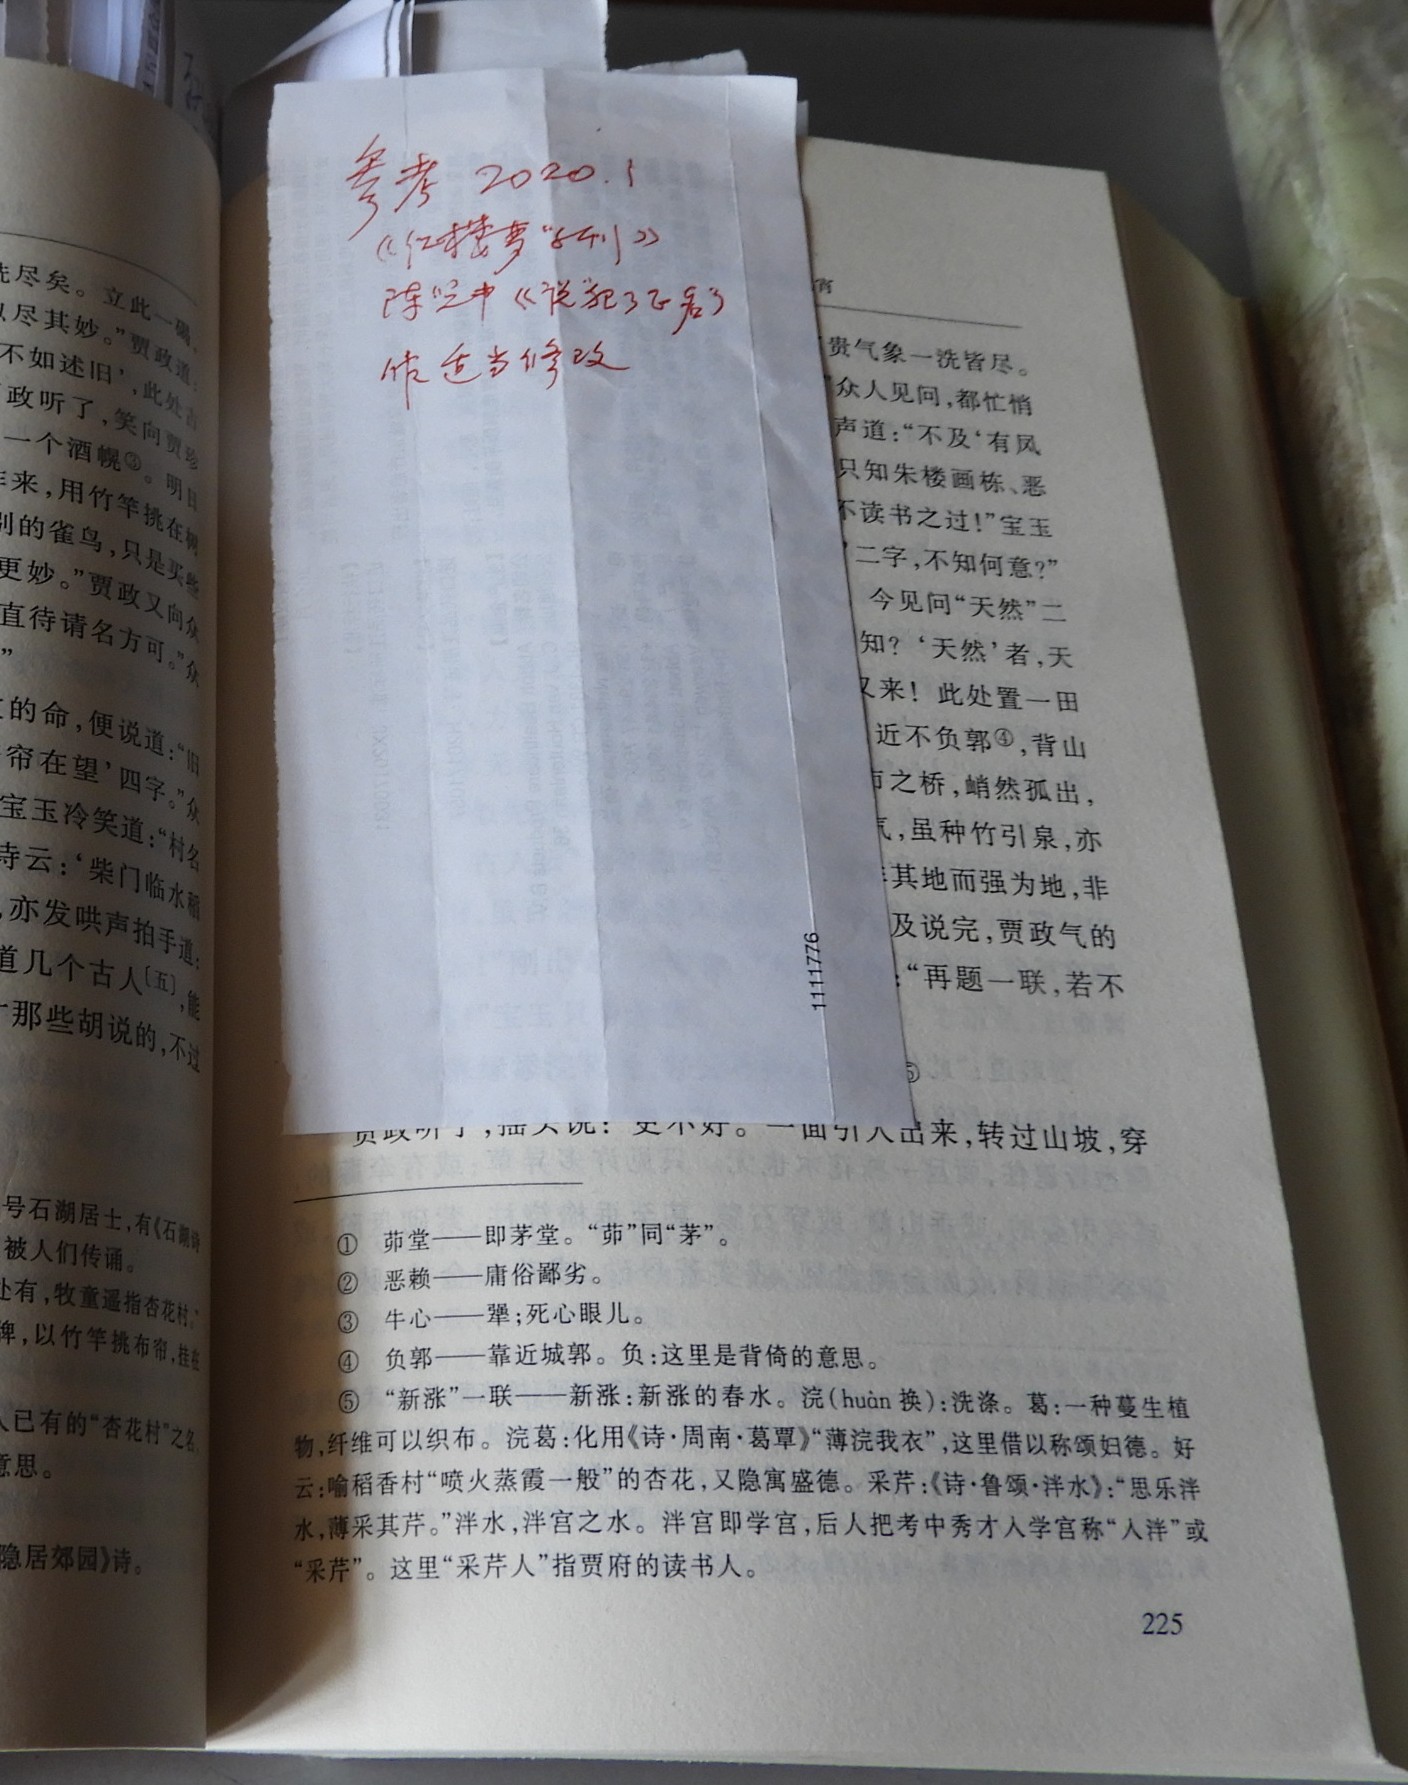 洗尽矣。立此一碣，
以尽其妙。”贾政道：
不如述旧’，此处古
政听了，笑向贾珍
一个酒幌③。明日
来，用竹竿挑在树
别的雀鸟，只是买些
更妙。”贾政又向众
直待请名方可。”众
”
的命，便说道：“旧
帘在望’四字。”众
宝玉冷笑道：“村名
诗云：‘柴门临水稻
，亦发哄声拍手道：
道几个古人〔五〕，能
那些胡说的，不过
号石湖居士，有《石湖诗
被人们传诵。
处有，牧童遥指杏花村。”
牌，以竹竿挑布帘，挂在
人已有的“杏花村”之名，
意思。
隐居郊园》诗。
参考 2020.1
《红楼梦学刊》
作适当修改
1111776
宵
贵气象一洗皆尽。
众人见问，都忙悄
声道：“不及‘有凤
只知朱楼画栋、恶
不读书之过！”宝玉
二字，不知何意？”
今见问“天然”二
知？‘天然’者，天
又来！此处置一田
近不负郭④，背山
市之桥，峭然孤出，
气，虽种竹引泉，亦
其地而强为地，非
及说完，贾政气的
：“再题一联，若不
⑤
贾政听了，摇头说：“更不好。”一面引人出来，转过山坡，穿
① 茆堂——即茅堂。“茆”同“茅”。
② 恶赖——庸俗鄙劣。
③ 牛心——犟；死心眼儿。
④ 负郭——靠近城郭。负：这里是背倚的意思。
⑤ “新涨”一联——新涨：新涨的春水。浣（huàn 换）：洗涤。葛：一种蔓生植
物，纤维可以织布。浣葛：化用《诗·周南·葛覃》“薄浣我衣”，这里借以称颂妇德。好
云：喻稻香村“喷火蒸霞一般”的杏花，又隐寓盛德。采芹：《诗·鲁颂·泮水》：“思乐泮
水，薄采其芹。”泮水，泮宫之水。泮宫即学宫，后人把考中秀才入学宫称“入泮”或
“采芹”。这里“采芹人”指贾府的读书人。
225